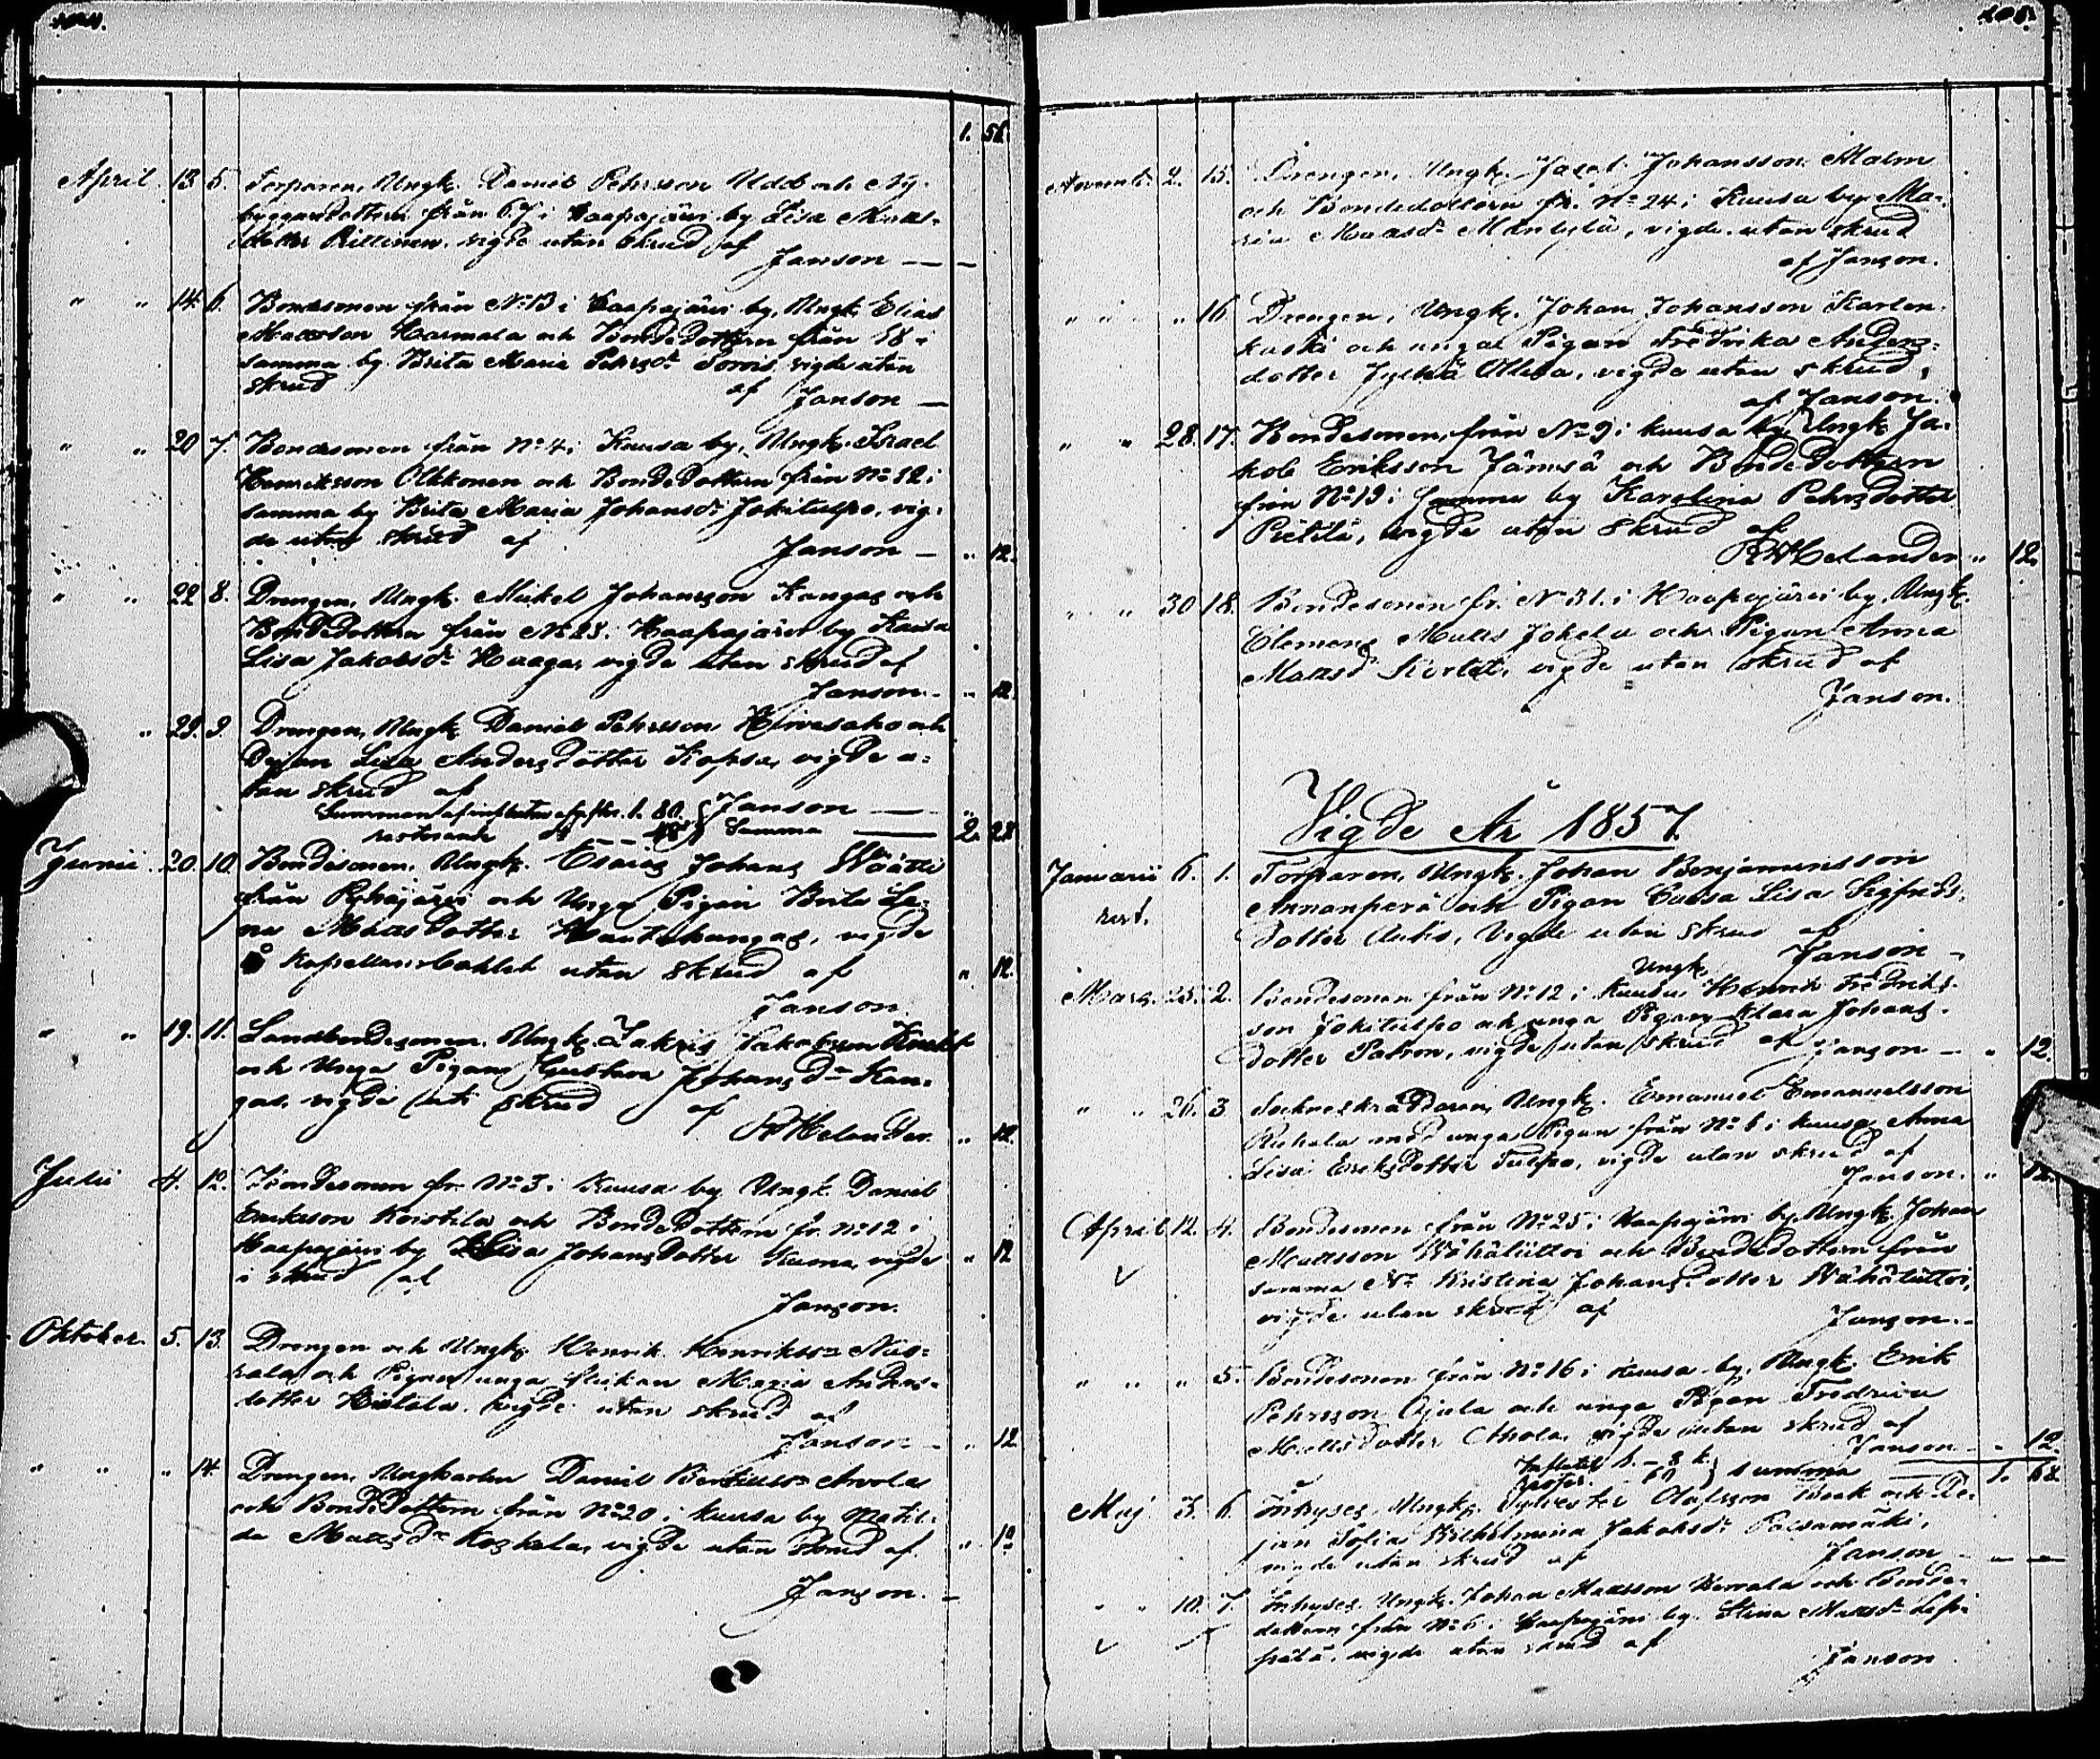 104.
1. 56.
April. 13 5. Torparen, Ungk. Daniel Pehrsson Udd och Ny-
byggardottern från 67 i Haapajärvi by Lisa Matts-
dotter Pillinen, vigde utan skrud af
Janson —
" " 14. 6. Bondesonen från No 13 i Haapajärvi by, Ungk. Elias
Mattsson Harmala och Bondedottern från 18 i
samma by Brita Maria Pehrsdr Torvis vigde utan
skrud af Janson —
" " 20 7. Bondesonen från No 4 i Kuusa by, Ungk. Israel
Henriksson Olkkonen och Bondedottern från No 12 i
samma by Brita Maria Johansdr Jokitulpo, vig-
de utan skrud af Janson — " 12.
" " 22 8. Drengen, Ungk. Mickel Johansson Kangas och
Bondedottern från No 28. Haapajärvi by Kaisa
Lisa Jakobsdr Haaga, vigde utan skrud af
Janson. " 12.
" 29. 9. Drengen, Ungk. Daniel Pehrsson Hirvasaho och
Pigan Lisa Andersdotter Kopsa, vigde u-
tan skrud af
Summan af influtne afgifter. 1. 80. Janson —
resterande 48 Summa — 2. 28
Junii. 20. 10. Bondesonen, Ungk. Esaias Johans Wäätti
från Pyhäjärvi och Unga Pigan Brita Le-
na Mattsdotter Hautakangas, vigde
å Kapellansbohlet utan skrud af " 12.
Janson.
" " 19. 11. Landbondesonen, Ungk. Zakris Jakobsson
och Unga Pigan Gustava Johansdr Kan-
gas, vigde uti skrud af
Helander. " 12.
Julii 4. 12. Bondesonen fr. No 3 i Kuusa by Ungk. Daniel
Eriksson Koistila och Bondedottern fr. No 12 i
Haapajärvi by Lisa Johansdotter Kuona, vigde " 12
i skrud af
Janson.
Oktober. 5. 13. Drengen och Ungk. Henrik Henriksson Nis-
kala och Pigan unga flickan Maria Anders-
dotter Hietala, vigde utan skrud af
Janson — " 12
" " " 14. Drengen, Ungkarlen Daniel Arvola
och Bondedottern från No 20 i Kuusa by Matil-
da Mattsdr Koskela, vigde utan skrud af " 12
Janson. —
105.
Novemb. 2. 15. Drengen, Ungk. Johansson Malm
och Bondedottern fr. No 24 i Kuusa by Ma-
ria Mattsdr Mäntylä, vigde utan skrud
af Janson.
" " " 16 Drengen, Ungk. Johan Johansson Karlon-
koski och unga Pigan Fredrika Anders-
dotter Jylhä Ollila, vigde utan skrud,
af Janson.
" " 28. 17. Bondesonen från No 9 i Kuusa by Ungk. Ja-
kob Eriksson Jämsä och Bondedottern
från No 19 i samma by Karolina Pehrsdotter
Pietilä, vigde utan skrud af
Helander " 12.
" " 30 18. Bondesonen fr. No 31. i Haapajärvi by, Ungk.
Clemens Matts Jokela och Pigan Anna
Mattsd. vigde utan skrud af
Janson.
Vigde År 1857
Januarii 6. 1. Torparen, Ungk. Johan Benjaminsson
rest. Annanperä och Pigan Caisa Lisa Sigfrids-
dotter Auho, Vigde utan skrud af
Janson —
Mars. 25. 2. Bondesonen från No 12 i Kuusa, Ungk. Henrik Fredriks-
son Jokitulpo och unga Pigan Klara Johans-
dotter Patron, vigde utan skrud af Janson — " 12.
" " 26. 3 Sockneskräddaren, Ungk. Emanuel Emanuelsson
Ruhala med unga Pigan från No 6 i Kuusa Anna
Lisa Eriksdotter Tulpo, vigde utan skrud af
Janson. " 12.
April 12. 4. Bondesonen från No 25 i Haapajärvi by, Ungk. Johan
Mattsson Vähälülloi och Bondedottern från
samma No Kristina Johansdotter Vähälülloi,
vigde utan skrud af
Janson. —
" " " 5. Bondesonen från No 16 i Kuusa by, Ungk. Erik
Pehrsson Ojala och unga Pigan Fredrica
Mattsdotter Ahola, vigde utan skrud af
Janson — " 12.
Influtet 1. – 8 k. summa — 1. 68
Maj. 3. 6. Inhyses, Ungk. Sylvester Olofsson Book och Pi-
gan Sofia Wilhelmina Jakobsdr Palsamäki,
vigde utan skrud af Janson — — —
" " 10. 7. Inhyses, Ungk. Johan Mattsson Kervala och Bonde-
dottern från No 6 i Haapajärvi by Stina Mattsdr
vigde utan skrud af
Janson